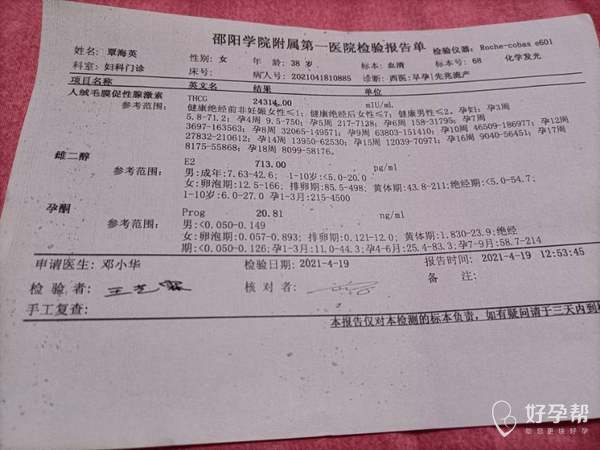 邵阳学院附属第一医院检验报告单
检验仪器：Roche-cobas e601
姓名：覃海英 性别：女 年龄：38 岁 标本：血清 化学发光
科室：妇科门诊 床号： 病人号：2021041810885 标本号：68
诊断：西医:早孕|先兆流产
项目名称 英文名 结果 单位
人绒毛膜促性腺激素 THCG 24314.00 mIU/mL
参考范围： 健康绝经前非妊娠女性≤1；健康绝经后女性≤7；健康男性≤2。孕妇：孕3周
5.8-71.2；孕4周 9.5-750；孕5周 217-7138；孕6周 158-31795；孕7周
3697-163563；孕8周 32065-149571；孕9周 63803-151410；孕10周 46509-186977；孕12周
27832-210612；孕14周 13950-62530；孕15周 12039-70971；孕16周 9040-56451；孕17周
8175-55868；孕18周 8099-58176。
雌二醇 E2 713.00 pg/ml
参考范围： 男:成年:7.63-42.6; 1-10岁:<5.0-20.0
女:卵泡期:12.5-166; 排卵期:85.5-498; 黄体期:43.8-211;绝经期:<5.0-54.7;
1-10岁:6.0-27.0 孕1-3月:215-4500
孕酮 Prog 20.81 ng/ml
参考范围： 男:<0.050-0.149
女:卵泡期:0.057-0.893; 排卵期:0.121-12.0; 黄体期:1.830-23.9;绝经
期:<0.050-0.126;孕1-3月:11.0-44.3;孕4-6月:25.4-83.3;孕7-9月:58.7-214
申请医生：邓小华 检验日期：2021-4-19 报告时间：2021-4-19 12:53:45
检验者： 核对者： 备注：
手工复查：
本报告仅对本检测的标本负责，如有疑问请于三天内到
好孕帮